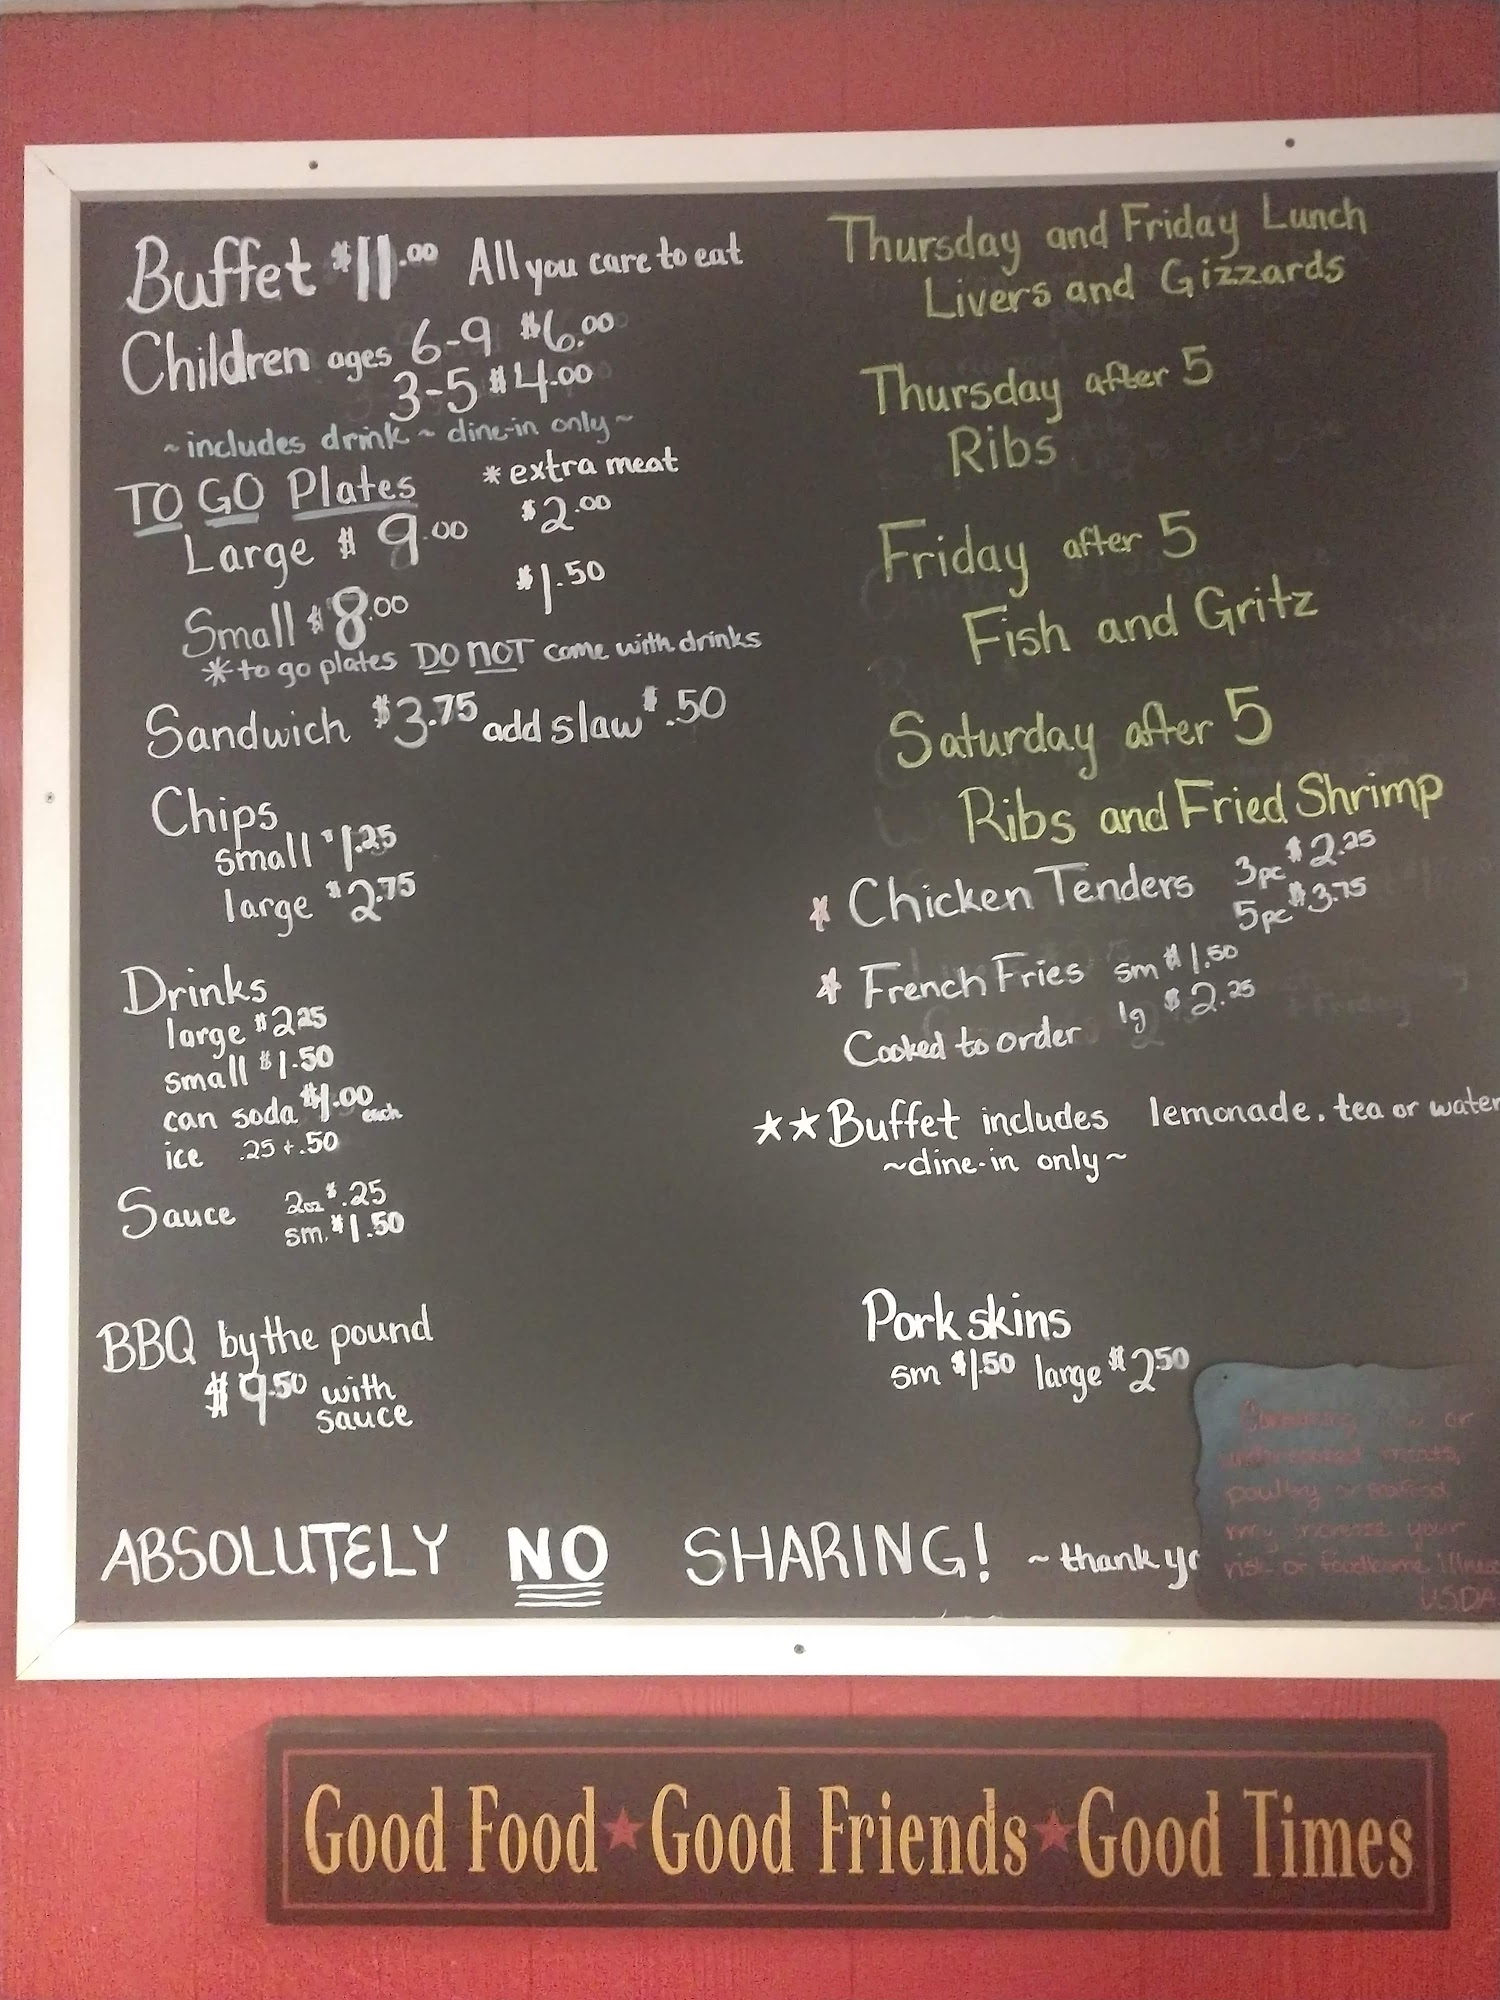 Buffet $11.00 All you care to eat
Children ages 6-9 $6.00
3-5 $4.00
~includes drink~ dine-in only~
TO GO Plates *extra meat
Large $9.00 $2.00
Small $8.00 $1.50
*to go plates DO NOT come with drinks
Sandwich $3.75 add slaw $.50
Chips
small $1.25
large $2.75
Drinks
large $2.25
small $1.50
can soda $1.00 each
ice .25 + .50
Sauce 2oz $.25
sm. $1.50
BBQ by the pound
$9.50 with
sauce
Thursday and Friday Lunch
Livers and Gizzards
Thursday after 5
Ribs
Friday after 5
Fish and Gritz
Saturday after 5
Ribs and Fried Shrimp
* Chicken Tenders 3pc $2.25
5pc $3.75
* French Fries sm $1.50
Cooked to order lg $2.25
★★Buffet includes lemonade. tea or water
~dine-in only~
Pork skins
sm $1.50 large $2.50
ABSOLUTELY NO SHARING! ~thank yo
or
undercooked meats,
poultry or seafood
may increase your
risk of foodborne illness
USDA
Good Food★Good Friends★Good Times